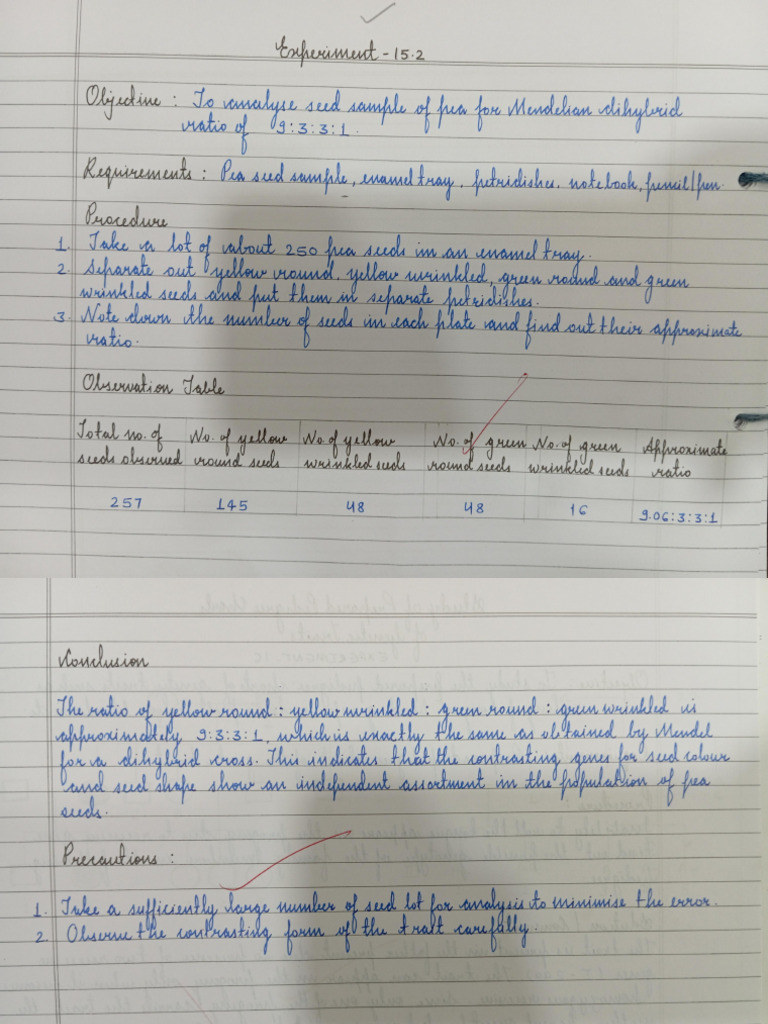 Experiment - 15.2
Objective : To analyse seed sample of pea for Mendelian dihybrid
ratio of 9:3:3:1.
Requirements : Pea seed sample, enamel tray, petridishes, notebook, pencil/pen.
Procedure
1. Take a lot of about 250 pea seeds in an enamel tray.
2. Separate out yellow round yellow wrinkled, green round and green
wrinkled seeds and put them in separate petridishes.
3. Note down the number of seeds in each plate and find out their approximate
ratio.
Observation Table
Total no. of seeds observed | No. of yellow round seeds | No. of yellow wrinkled seeds | No. of green round seeds | No. of green wrinkled seeds | Approximate ratio
257 | 145 | 48 | 48 | 16 | 9.06:3:3:1
Conclusion
The ratio of yellow round : yellow wrinkled : green round : green wrinkled is
approximately 9:3:3:1, which is exactly the same as obtained by Mendel
for a dihybrid cross. This indicates that the contrasting genes for seed colour
and seed shape show an independent assortment in the population of pea
seeds.
Precautions :
1. Take a sufficiently large number of seed lot for analysis to minimise the error.
2. Observe the contrasting form of the trait carefully.